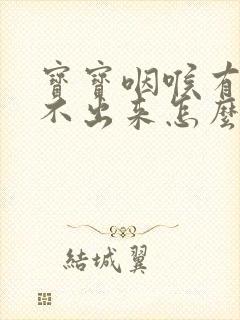 寶寶咽喉有
不出來怎麼
結城翼